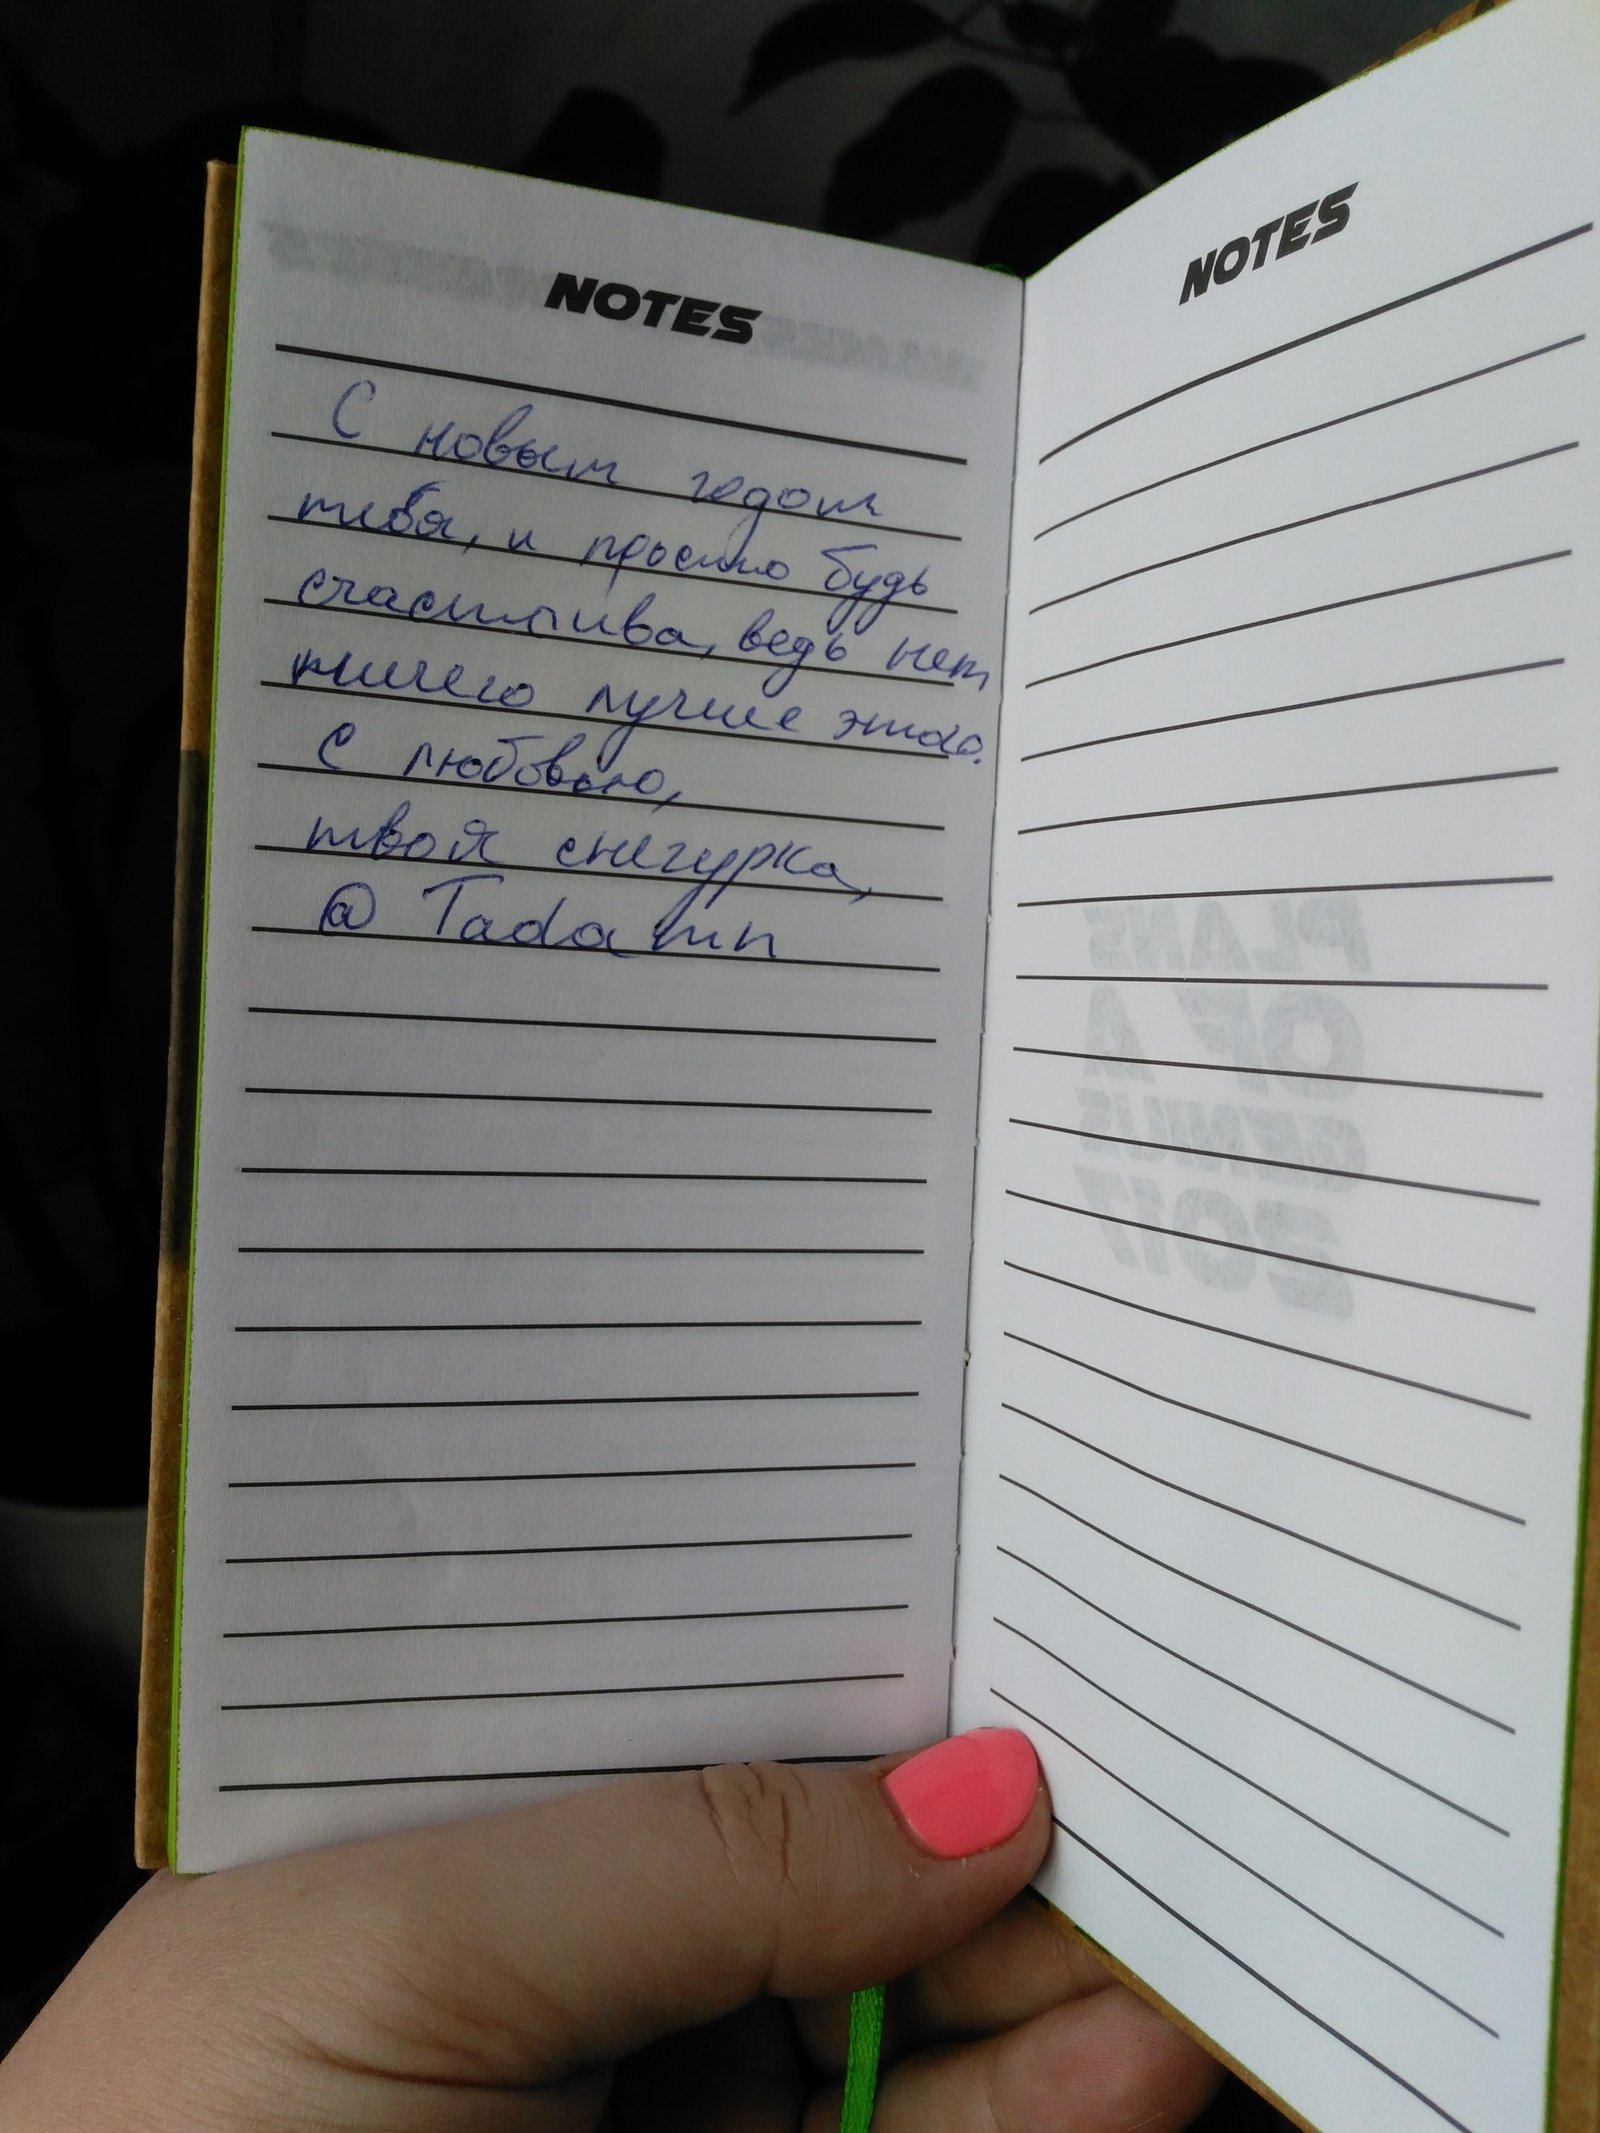 NOTES
С новым годом
тебя, и просто будь
счастлива, ведь нет
ничего лучше этого.
С любовью,
твоя снегурка,
@ Tadamn
NOTES
PLANS
OF A
GENIUS
2017